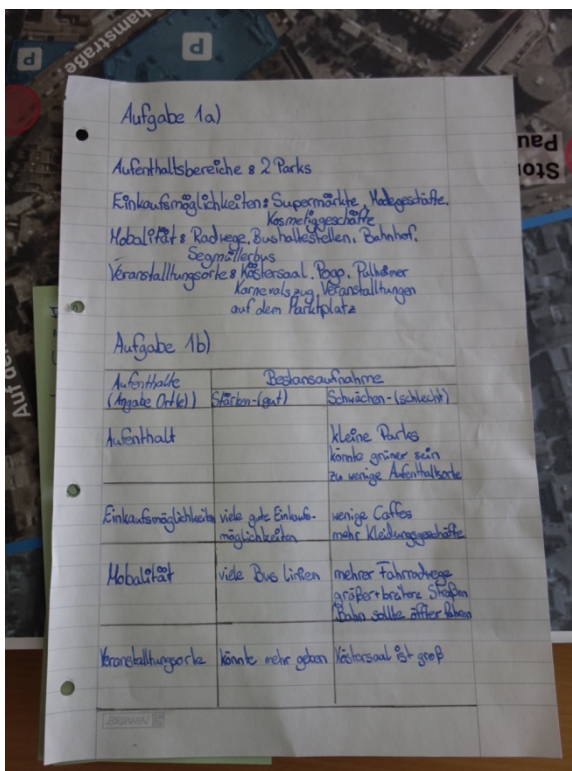 hamstraße
P
P
Stor
Pau
Auf der
Aufgabe 1a)
Aufenthaltsbereiche : 2 Parks
Einkaufsmöglichkeiten : Supermärkte, Modegeschäfte,
Kosmetiggeschäfte
Mobalität : Radwege, Bushaltestellen, Bahnhof,
Segmüllerbus
Veranstalltungsorte : Köstersaal, Poap, Pulheimer
Karnevalszug, Veranstalltungen
auf dem Marktplatz
Aufgabe 1b)
Aufenthalte Bestansaufnahme
(Angabe Ort(e)) Stärken-(gut) Schwächen-(schlecht)
Aufenthalt kleine Parks
könnte grüner sein
zu wenige Aufenthaltsorte
Einkaufsmöglichkeiten viele gute Einkaufs- wenige Caffes
möglichkeiten mehr Kleidungsgeschäfte
Mobalität viele Bus linien mehrer Fahrradwege
größer+breitere Straßen
Bahn sollte öffter fahren
Veranstalltungsorte könnte mehr geben Köstersaal ist groß
BRUNNEN